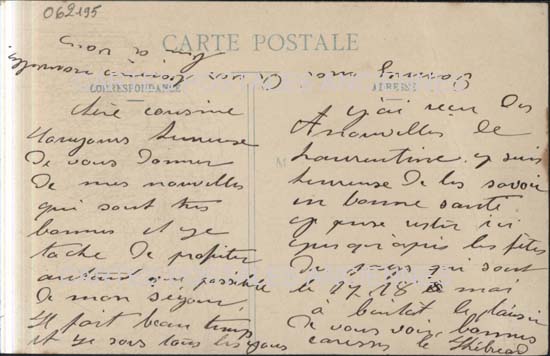 062195
CARTE POSTALE
CORRESPONDANCE
ADRESSE
chère cousine
toujours heureuse
de vous donner
de mes nouvelles
qui sont très
bonnes et je
tache de profiter
autant que possible
de mon séjour
Il fait beau temps
et je sors tous les jours
j'ai reçu des
nouvelles de
Laurentine je suis
heureuse de les savoir
en bonne santé
je pense rester ici
jusqu'après les fêtes
du pays qui sont
le 17 18 mai
à bientôt le plaisir
de vous voir bonnes
caresses